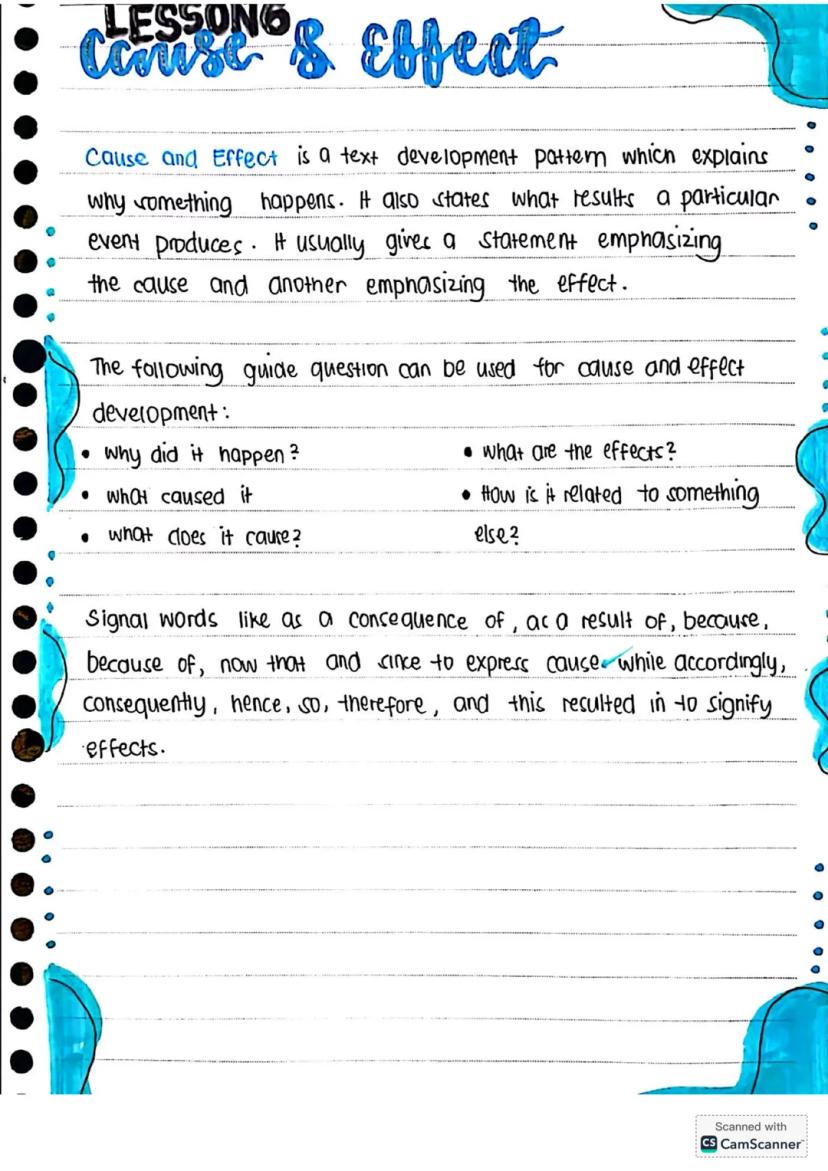 LESSON6
Cause & Effect
Cause and Effect is a text development pattern which explains
why something happens. It also states what results a particular
event produces. It usually gives a statement emphasizing
the cause and another emphasizing the effect.
The following guide question can be used for cause and effect
development:
• why did it happen?
• what caused it
• what does it cause?
• what are the effects?
• How is it related to something
else?
Signal words like as a consequence of, as a result of, because,
because of, now that and since to express cause while accordingly,
consequently, hence, so, therefore, and this resulted in to signify
effects.
Scanned with
CS CamScanner